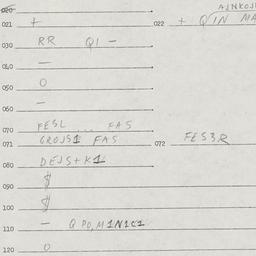 020
021 +
022 + QIN MA
030 RR QI -
040 -
050 O
060 -
070 FESL ... FAS
071 GROJS1 FAS
072 FES3R
080 DEJS+K1
090 $
100 $
110 - Q PO, M1N1C1
120 O